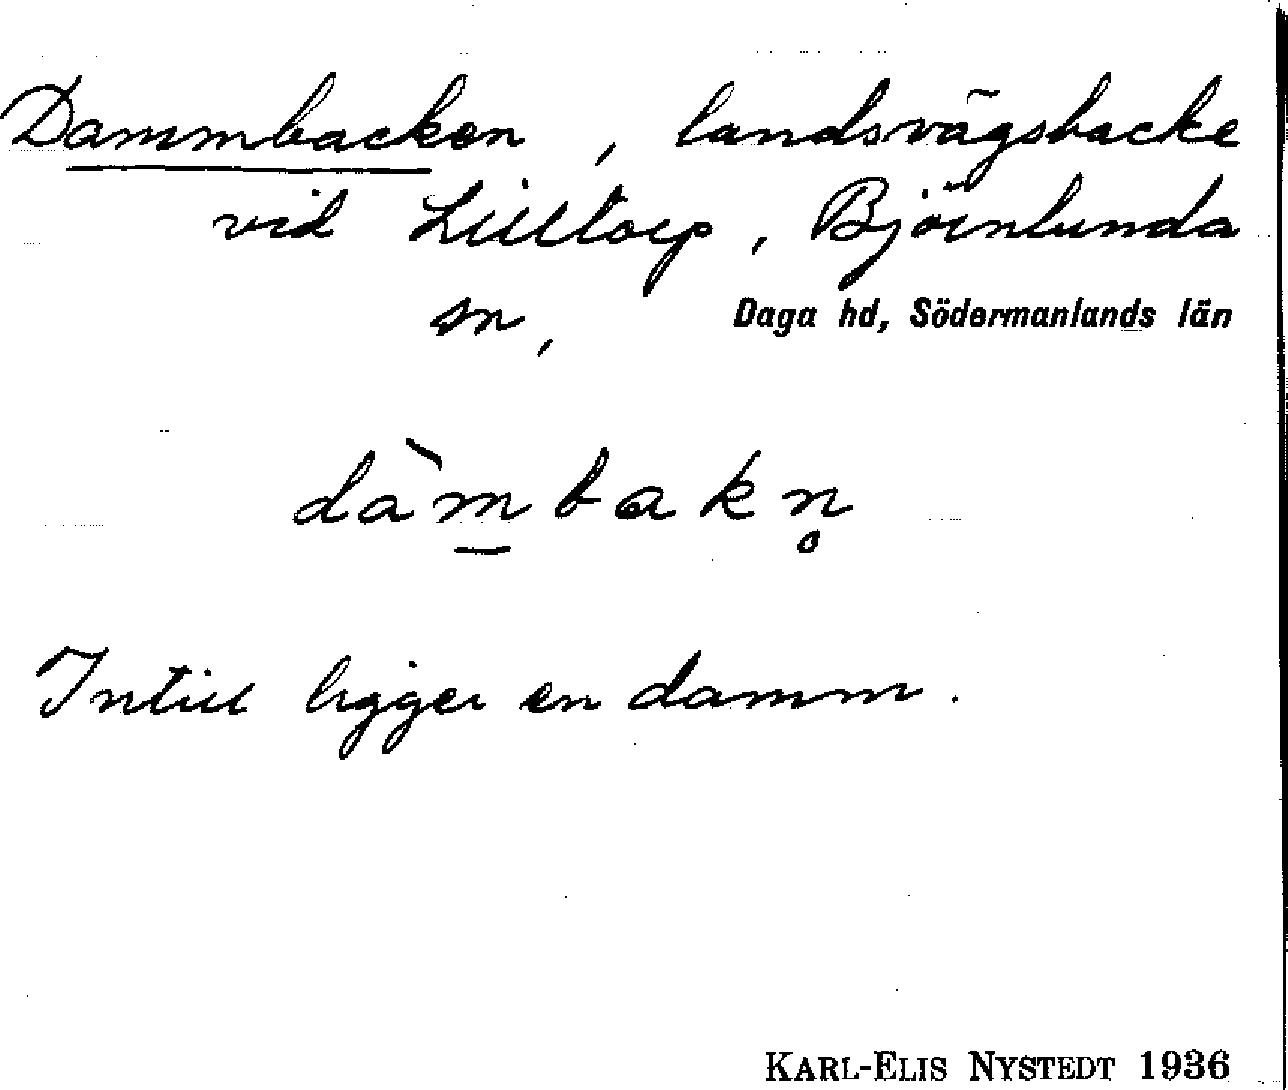 Dammbacken, landsvägsbacke
vid Lilltorp, Björnlunda
sn, Daga hd, Södermanlands län
dàm̲bakn̥
Intill ligger en damm.
KARL-ELIS NYSTEDT 1936